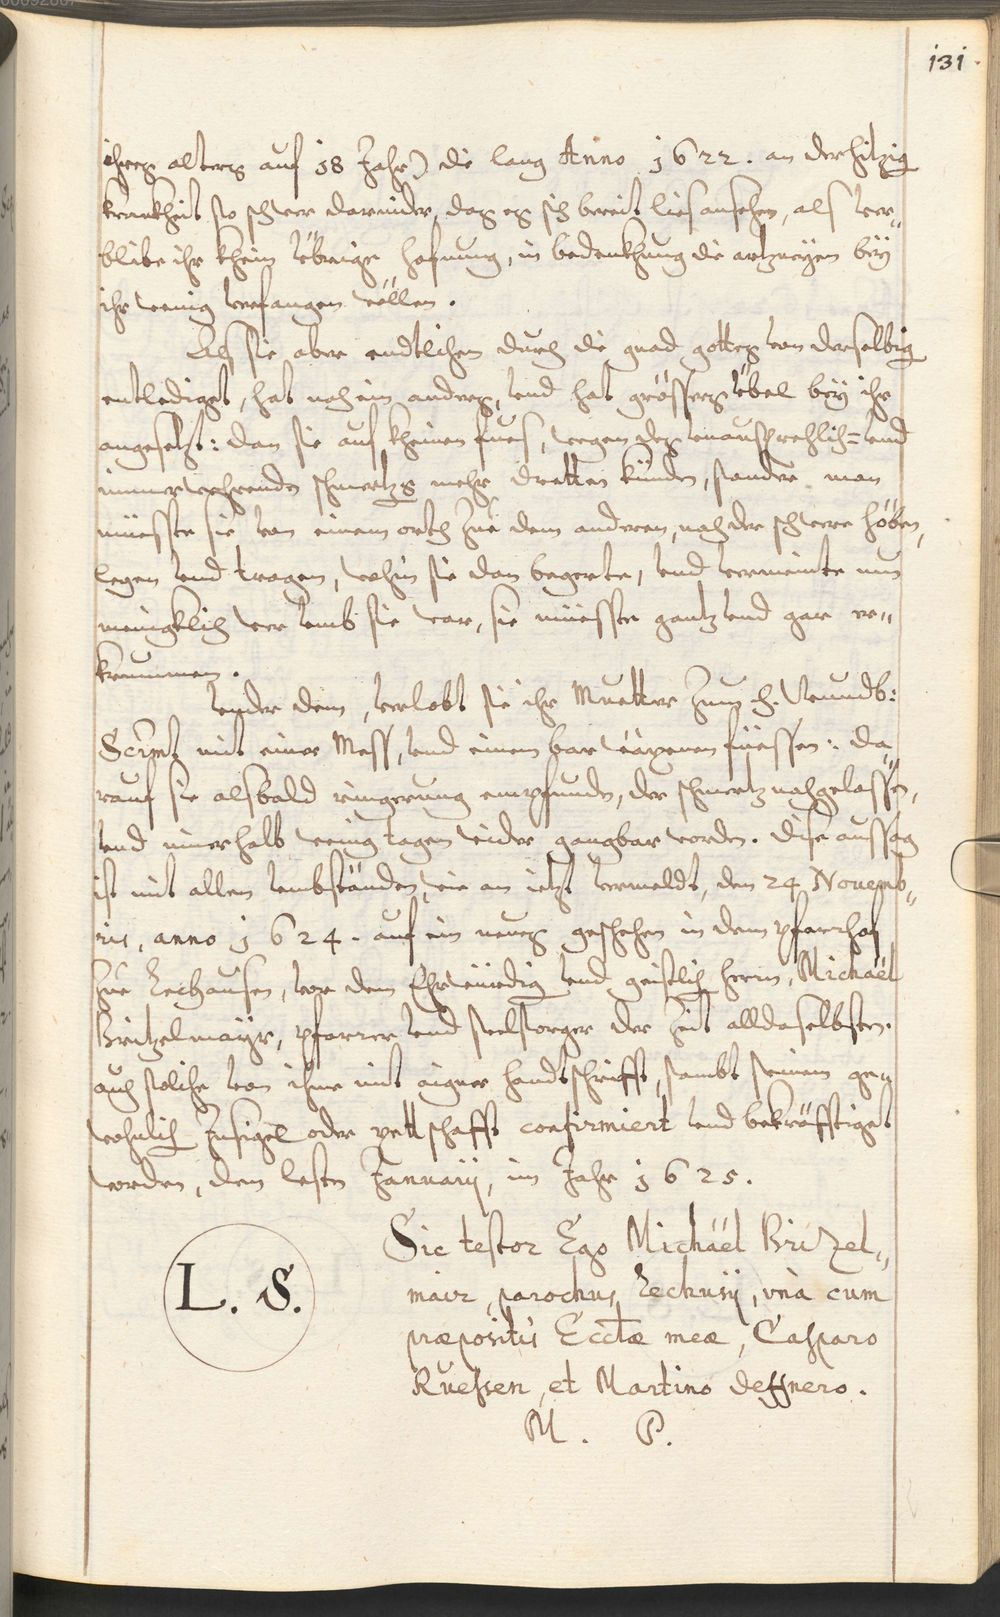 131
ihres alters auf 18 Jahr) die lang Anno 1622. an der hitzig
krankheit so schwer darnider, das es sich bereit lies ansehen, als ver„
blibe ihr khein übrige hofnung, in bedenkhung die artzneyen bey
ihr wenig verfangen wöllen.
Als sie aber endtlichen durch die gnad gottes von derselbig
entlediget, hat noh ein anders, vnd hat grössers übel bey ihr
angesetzt: dan sie auf kheinen fues, wegen des vnaussprehlich= vnd
immerwehrenden schmertzs mehr dretten künden, sonder man
müeste sie von einem orth zue dem anderen, nah der schwere höben,
legen vnd tragen, wohin sie dan begerte, vnd vermeinte nun
menigklich wer vmb sie war, sie müesste gantz vnd gar er„
krummen.
Vnder dem, verlobt sie ihr Muetter zum h. Wundb:
Scrmt mit einer Mess, vnd einem bar wäxenen füessen: da„
rauf sie alsbald ringerung empfunden, der schmertz nahgelassen,
vnd innerhalb wenig tagen wider gangbar worden. dise aussag
ist mit allen vmbständen, wie an ietzt vermeldt, den 24 Novemb„
ris, anno 1624. auf ein neues geschehen in dem pfarrhof
zue Lechausen, vor dem Ehrwürdig vnd geistlich herrn, Michaël
Britzelmayr, pfarrer vnd seelsorger der zeit alldaselbsten.
auch solche von ihme mit aigner handtschrifft, sambt seinem ge„
wohnlich Insigel oder pettschafft confirmiert vnd bekräfftiget
worden, den lesten Januarij, im Jahr 1625.
L. S.
Sic testor Ego Michäel Brizel„
mair, parochus Lechusij, vnà cum
præpositis Ecctæ meæ, Casparo
Ruessen, et Martino dessnero.
M. P.